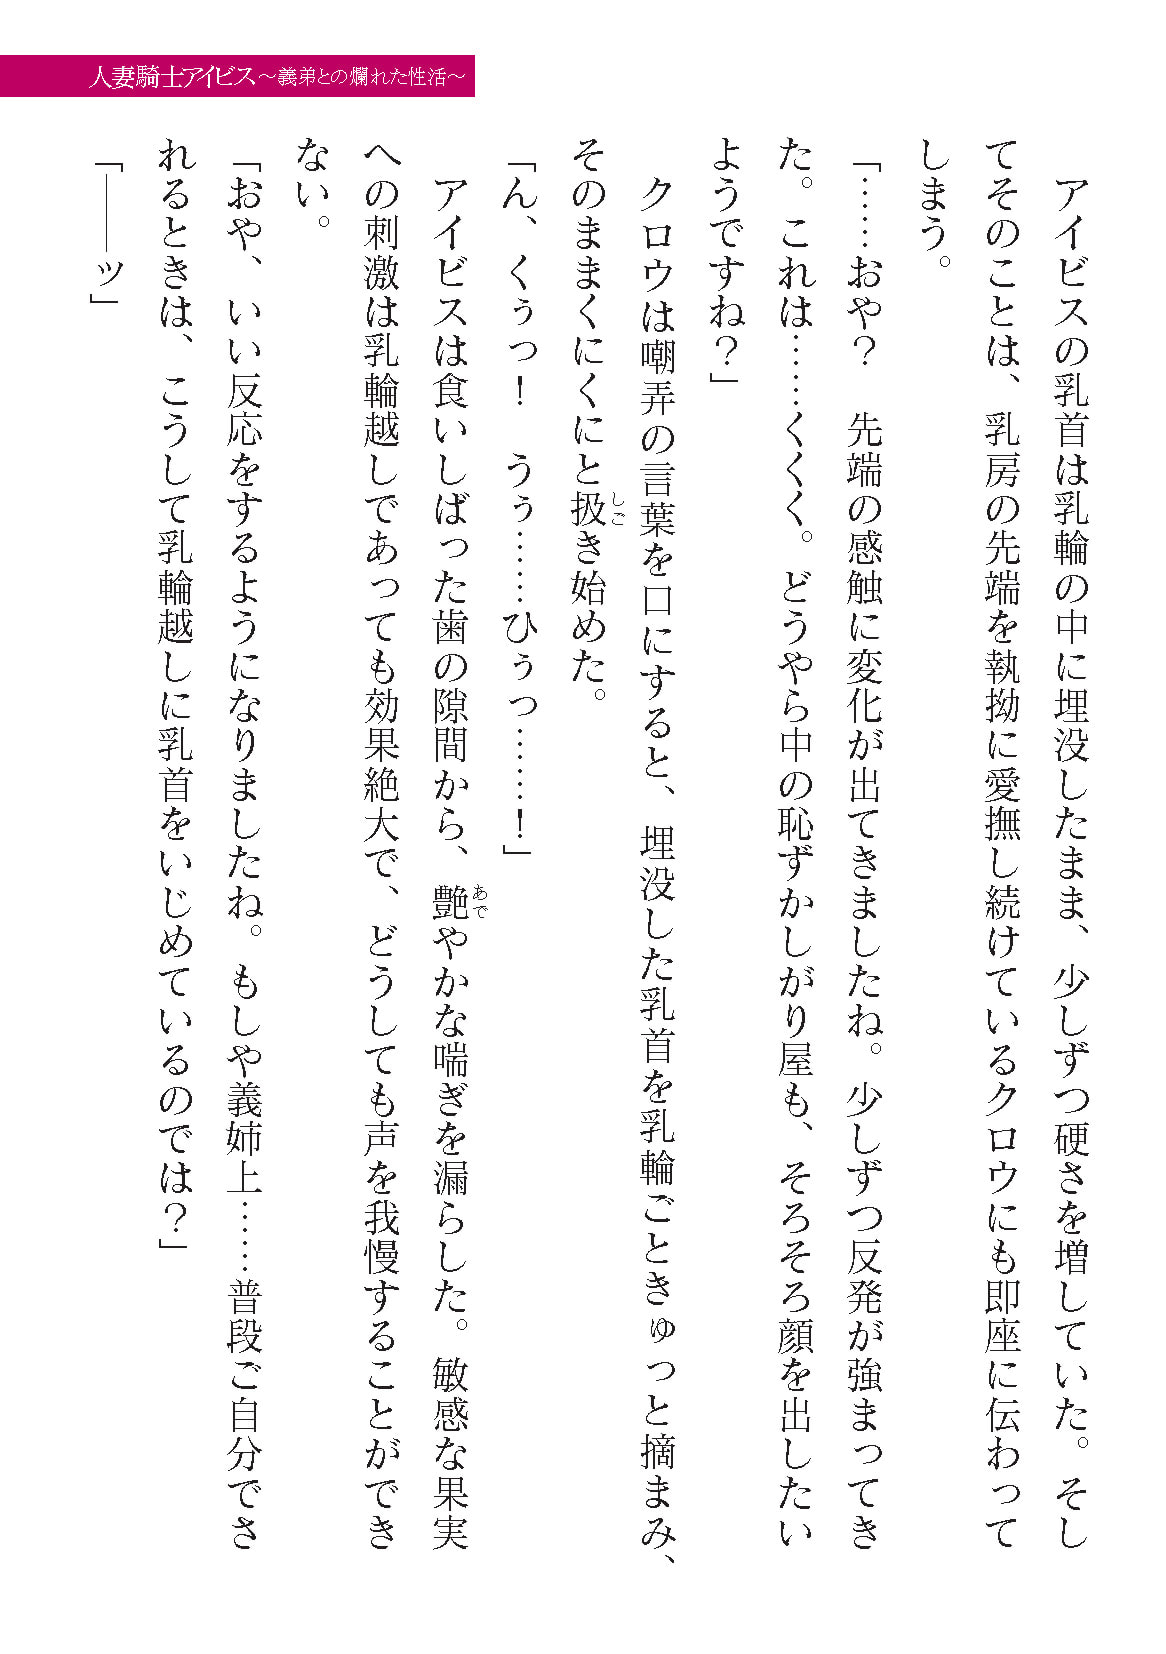 人妻騎士アイビス～義弟との爛れた性活～
　アイビスの乳首は乳輪の中に埋没したまま、少しずつ硬さを増していた。そし
てそのことは、乳房の先端を執拗に愛撫し続けているクロウにも即座に伝わって
しまう。
「……おや？　先端の感触に変化が出てきましたね。少しずつ反発が強まってき
た。これは……くくく。どうやら中の恥ずかしがり屋も、そろそろ顔を出したい
ようですね？」
　クロウは嘲弄の言葉を口にすると、埋没した乳首を乳輪ごときゅっと摘まみ、
そのままくにくにと扱き始めた。
しご
「ん、くぅっ！　うぅ……ひぅっ……！」
　アイビスは食いしばった歯の隙間から、艶やかな喘ぎを漏らした。敏感な果実
あで
への刺激は乳輪越しであっても効果絶大で、どうしても声を我慢することができ
ない。
「おや、いい反応をするようになりましたね。もしや義姉上……普段ご自分でさ
れるときは、こうして乳輪越しに乳首をいじめているのでは？」
「――ッ」